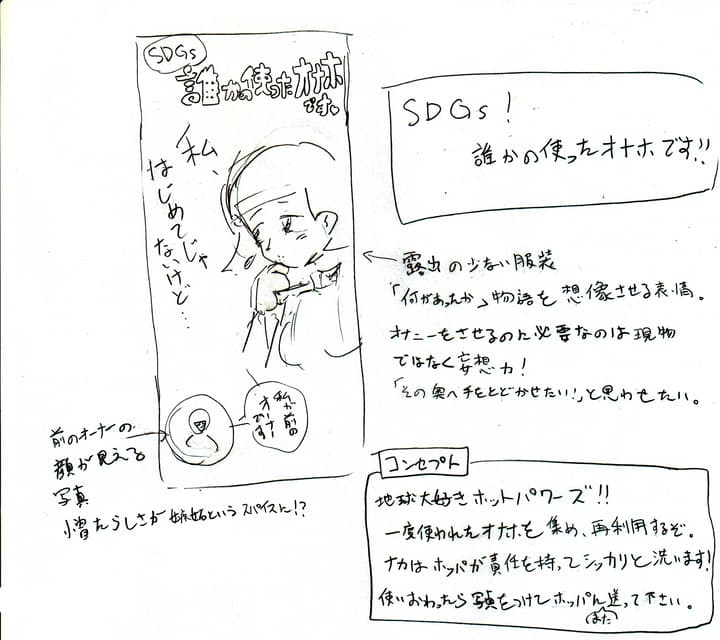 SDGs
誰かの使ったオナホ
です。
私、
はじめてじゃ
ないけど…
私が前の
オーナー
です
前のオーナーの
顔が見える
写真
小憎たらしさが嫉妬というスパイスに!?
SDGs!
誰かの使ったオナホです!!
← 露出の少ない服装
「何があったか」物語を想像させる表情。
オナニーをさせるのに必要なのは現物
ではなく妄想力!
「その奥へ手をとどかせたい!」と思わせたい。
コンセプト
地球大好きホットパワーズ!!
一度使われたオナホを集め、再利用するぞ。
ナカはホッパが責任を持ってシッカリと洗います!
使いおわったら写真をつけてホッパへ送って下さい。
また